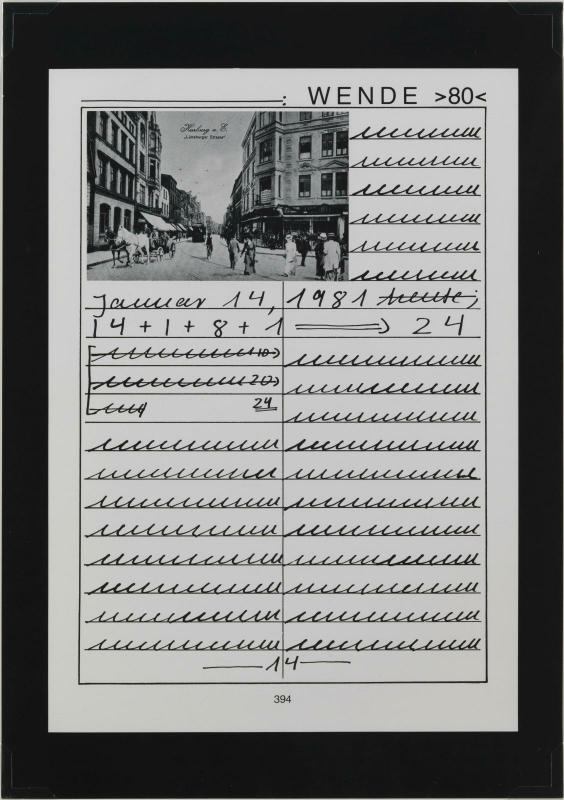 : WENDE >80<
Harburg a. E.
„Lüneburger Strasse“
Januar 14, 1981 heute;
14 + 1 + 8 + 1 ⟹ 24
10
20
24
14
394